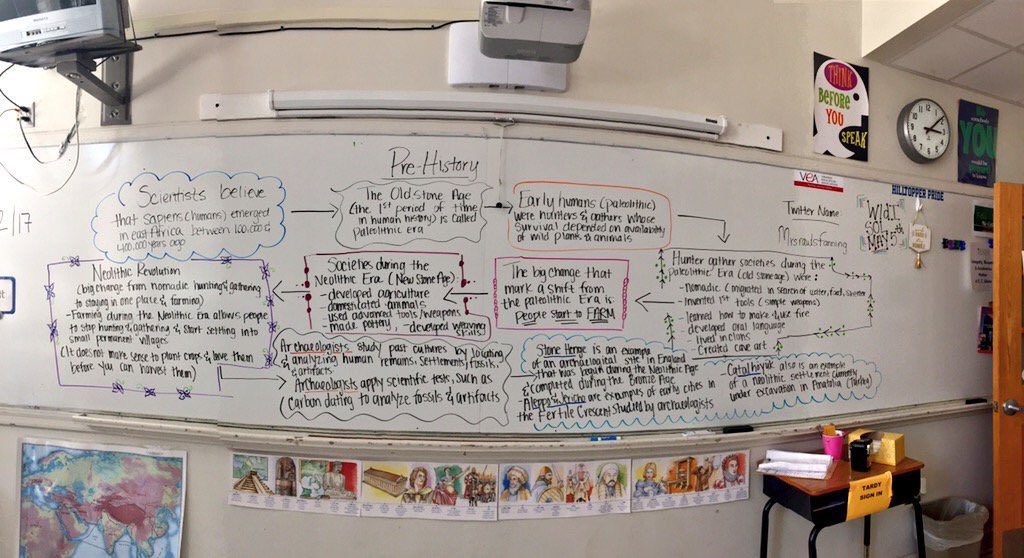 Pre-History
Scientists believe
that sapiens (humans) emerged
in east Africa between 100,000 &
400,000 years ago
The Old stone Age
(the 1st period of time
in human history) is called
paleolithic era
Early humans (paleolithic)
were hunters & gathurs whose
survival depended on availability
of wild plants & animals
Hunter gather societies during the
Paleolithic Era (old stone age) were:
- Nomadic (migrated in search of water, food, shelter
- Invented 1st tools (simple weapons)
- learned how to make & use fire
- developed oral language
- lived in clans
- Created cave art
The big change that
mark a shift from
the paleolithic Era is:
People start to FARM
Societies during the
Neolithic Era (New Stone Age)
- developed agriculture
- domesticated animals
- used advanced tools/weapons
- made pottery, - developed weaving
skills
Neolithic Revolution
(big change from nomadic hunting & gathering
to staying in one place & farming)
- Farming during the Neolithic Era allows people
to stop hunting & gathering & start settling into
small permanent villages
(It does not make sense to plant crops & leave them
before you can harvest them)
Archaeologists study past cultures by locating
& analyzing human remains, settlements, fossils,
& artifacts
Archaeologists apply scientific tests, such as
carbon dating to analyze fossils & artifacts
Stone Henge is an example
of an archaeological site in England
that was begun during the Neolithic Age
& completed during the Bronze Age
Aleppo & Jericho are examples of early cities in
the Fertile Crescent studied by archaeologists
Catalhoyuk also is an example
of a neolithic settlement currently
under excavation in Anatolia (Turkey)
2/17
VEA
Twitter Name:
HILLTOPPER PRIDE
WldI
SOL
MAY 5th
THINK
BEFORE
YOU
SPEAK
YOU
TARDY
SIGN IN